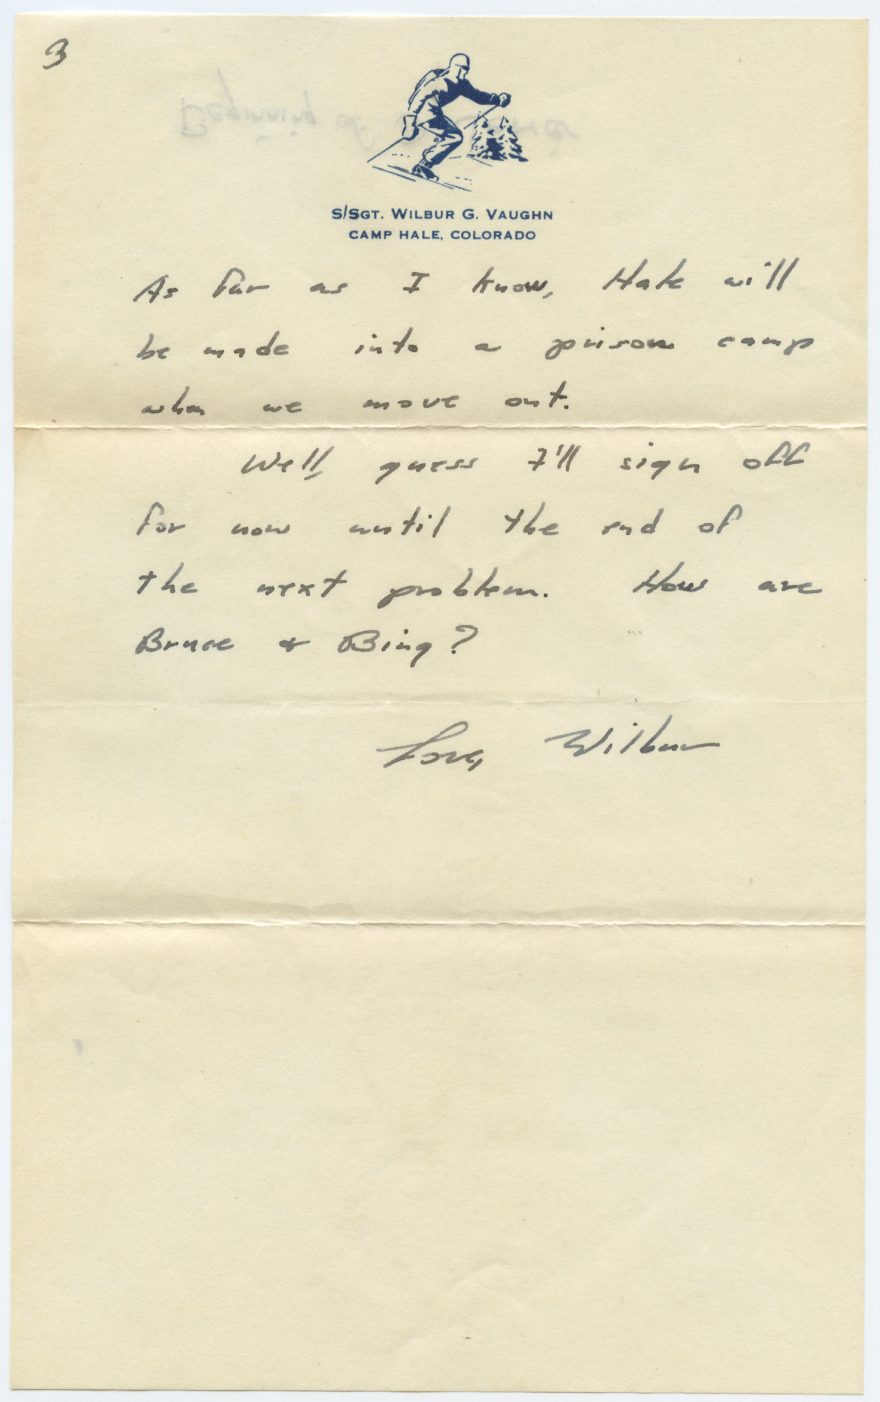 3
S/SGT. WILBUR G. VAUGHN
CAMP HALE, COLORADO
As far as I know, Hale will
be made into a prison camp
when we move out.
Well, guess I'll sign off
for now until the end of
the next problem. How are
Bruce & Bing?
Love, Wilbur